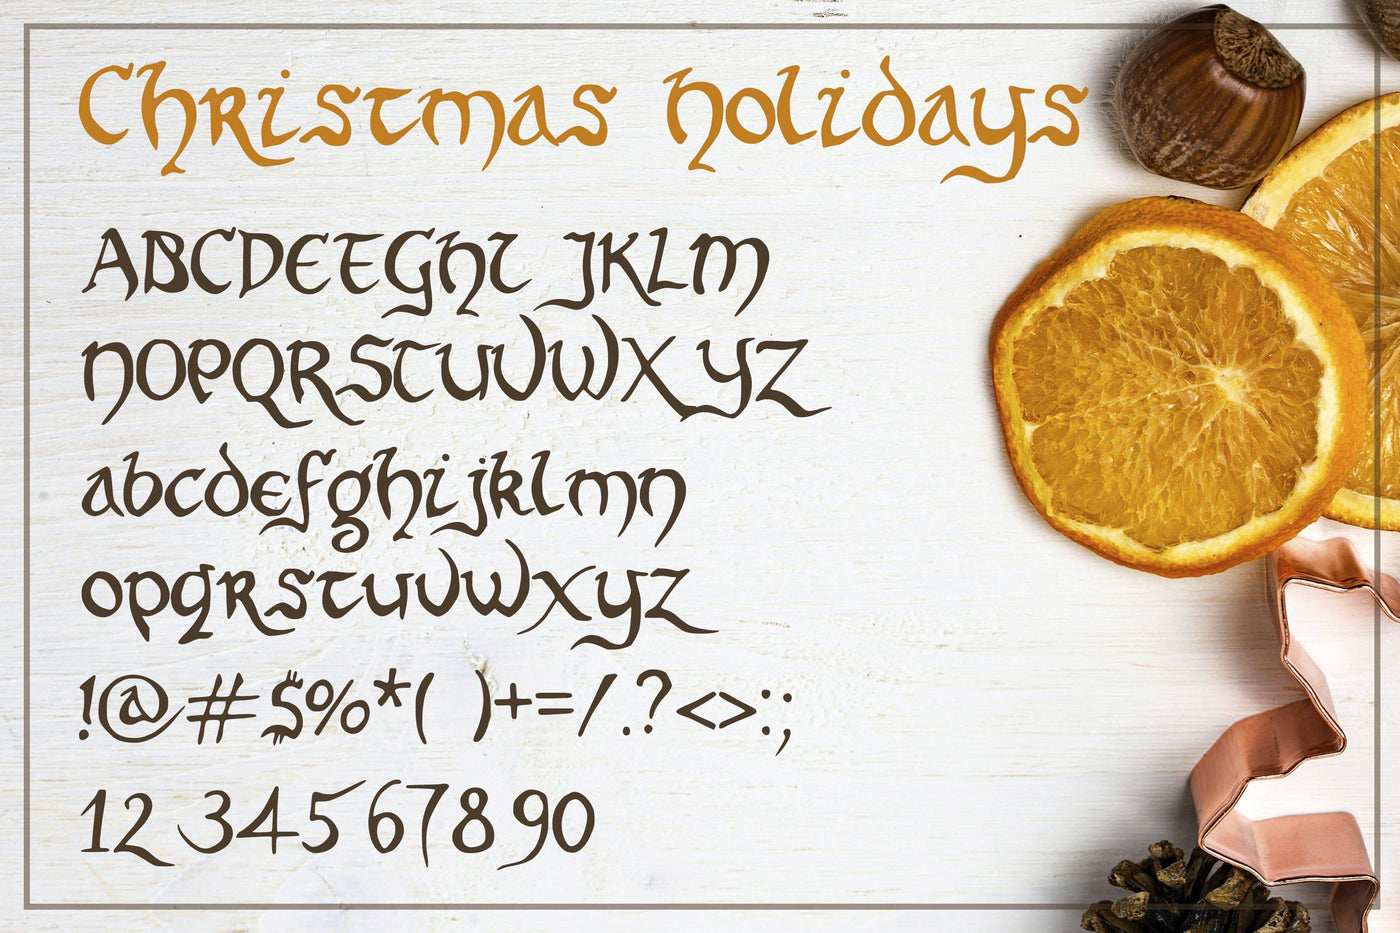 Christmas Holidays
ABCDEFGHI JKLM
NOPQRSTUVWXYZ
abcdefghijklmn
opqrstuvwxyz
!@#$%*( )+=/.?<>:;
12 34567890